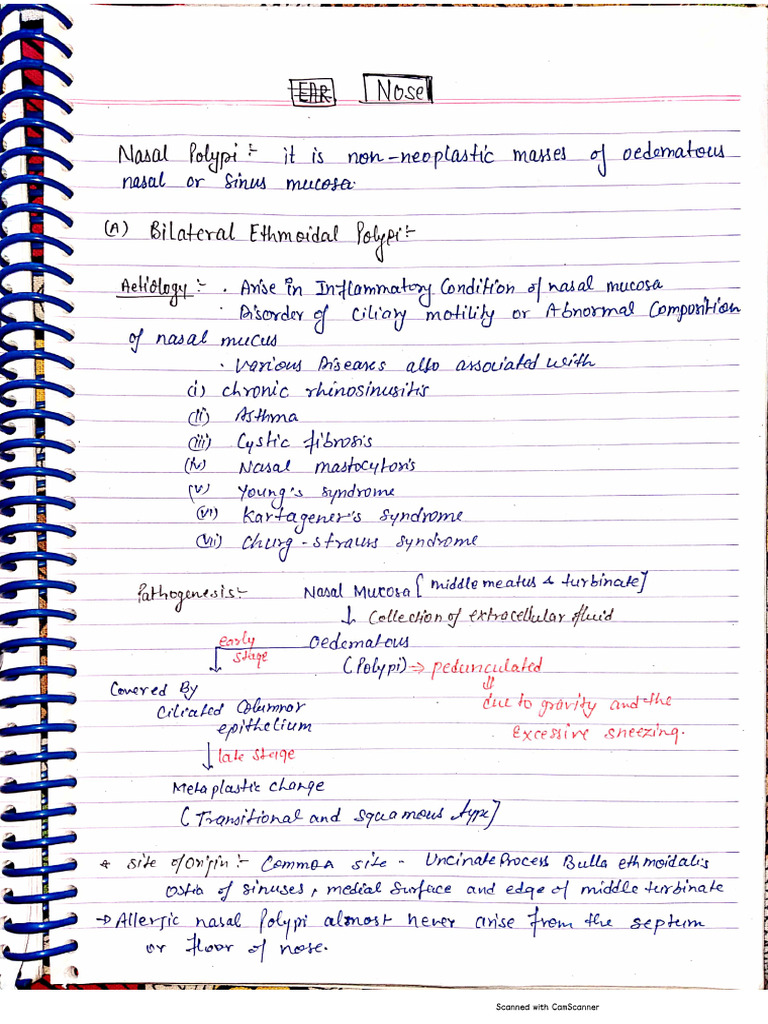 EAR Nose
Nasal Polypi :- it is non-neoplastic masses of oedematous
nasal or sinus mucosa.
(A) Bilateral Ethmoidal Polypi :-
Aetiology :- . Arise in Inflammatory Condition of nasal mucosa
. Disorder of ciliary motility or Abnormal Composition
of nasal mucus
. Various Diseases also associated with
(i) chronic rhinosinusitis
(ii) Asthma
(iii) Cystic fibrosis
(iv) Nasal mastocytosis
(v) Young's syndrome
(vi) Kartagener's syndrome
(vii) Churg-strauss syndrome
Pathogenesis :- Nasal Mucosa [middle meatus & turbinate]
↓ Collection of extracellular fluid
early stage Oedematous
(Polypi) → pedunculated
Covered By
Ciliated Columnar
epithelium
⇓
due to gravity and the
Excessive sneezing.
↓ late stage
Metaplastic change
[Transitional and squamous type]
* Site of Origin :- Common site - Uncinate Process Bulla ethmoidalis
ostia of sinuses, medial surface and edge of middle turbinate
→ Allergic nasal polypi almost never arise from the septum
or floor of nose.
Scanned with CamScanner